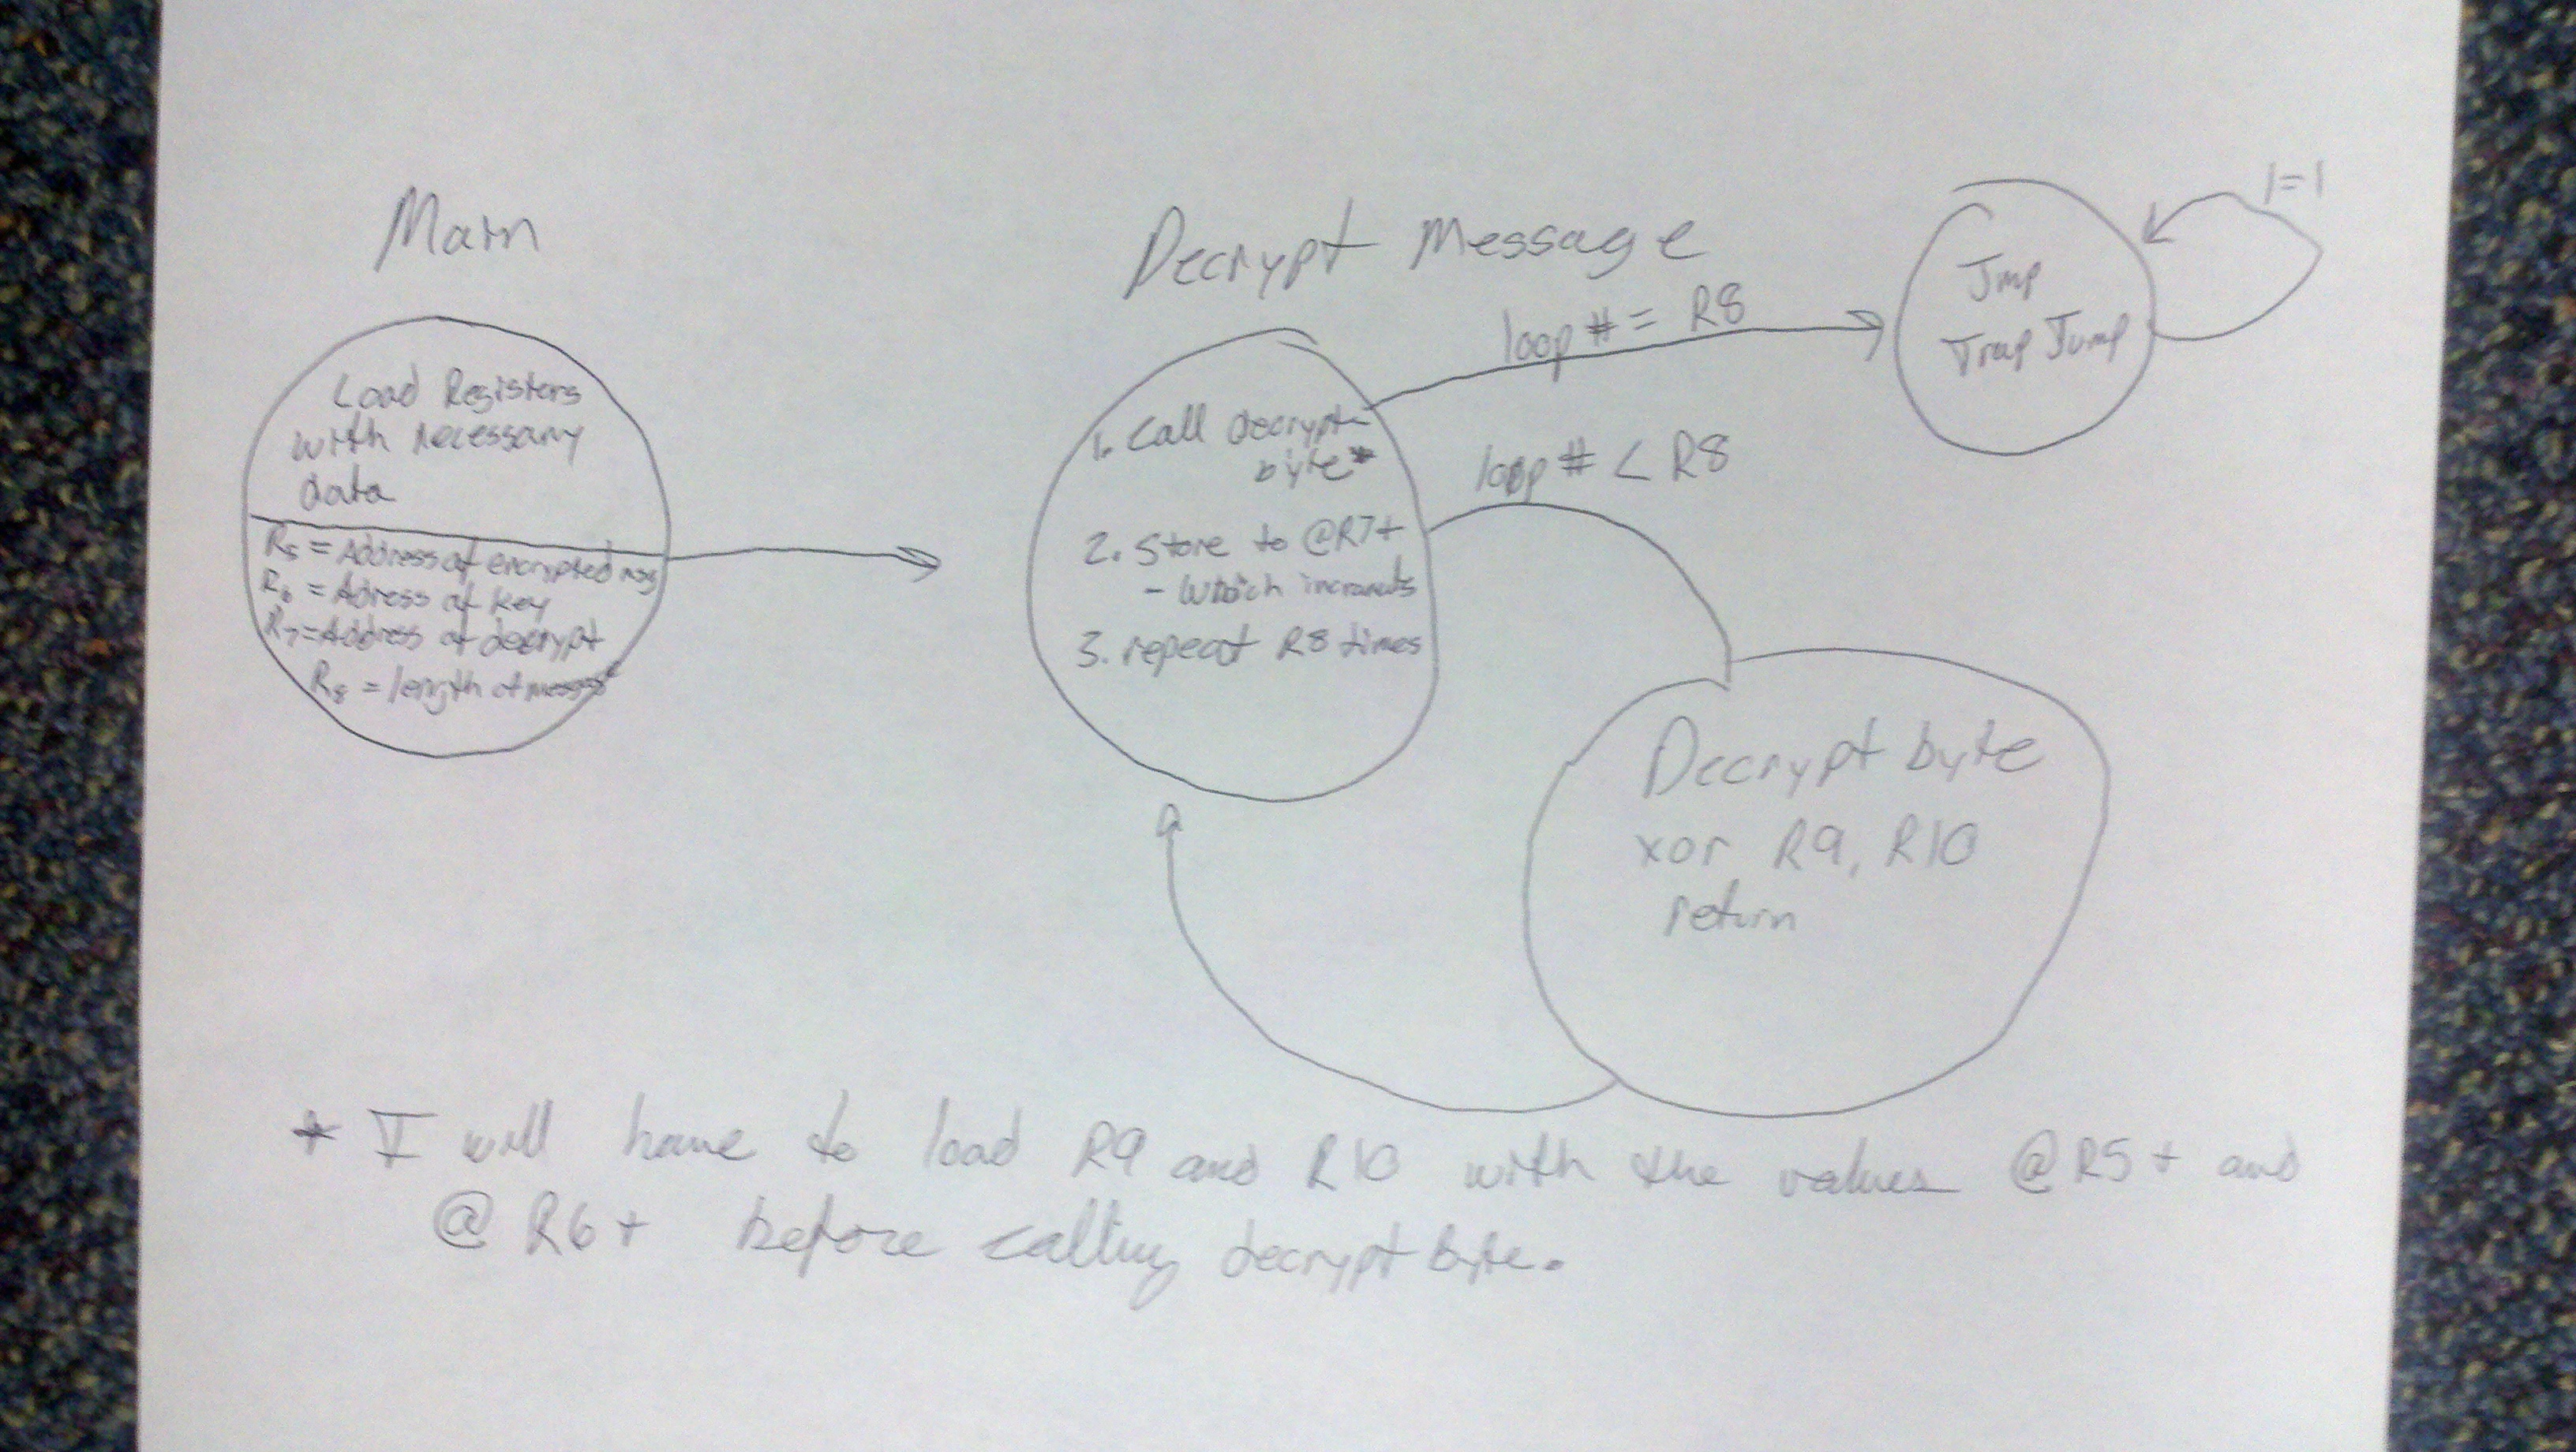 Main
Load Registers
with necessary
data
R5 = Address of encrypted msg
R6 = Adress of key
R7 = Address of decrypt
R8 = length of message
Decrypt Message
1. Call decrypt
byte*
2. Store to @R7+
- Which increments
3. repeat R8 times
loop # = R8
loop # < R8
Jmp
Trap Jump
1=1
Decrypt byte
xor R9, R10
return
* I will have to load R9 and R10 with the values @R5+ and
@R6+ before calling decrypt byte.